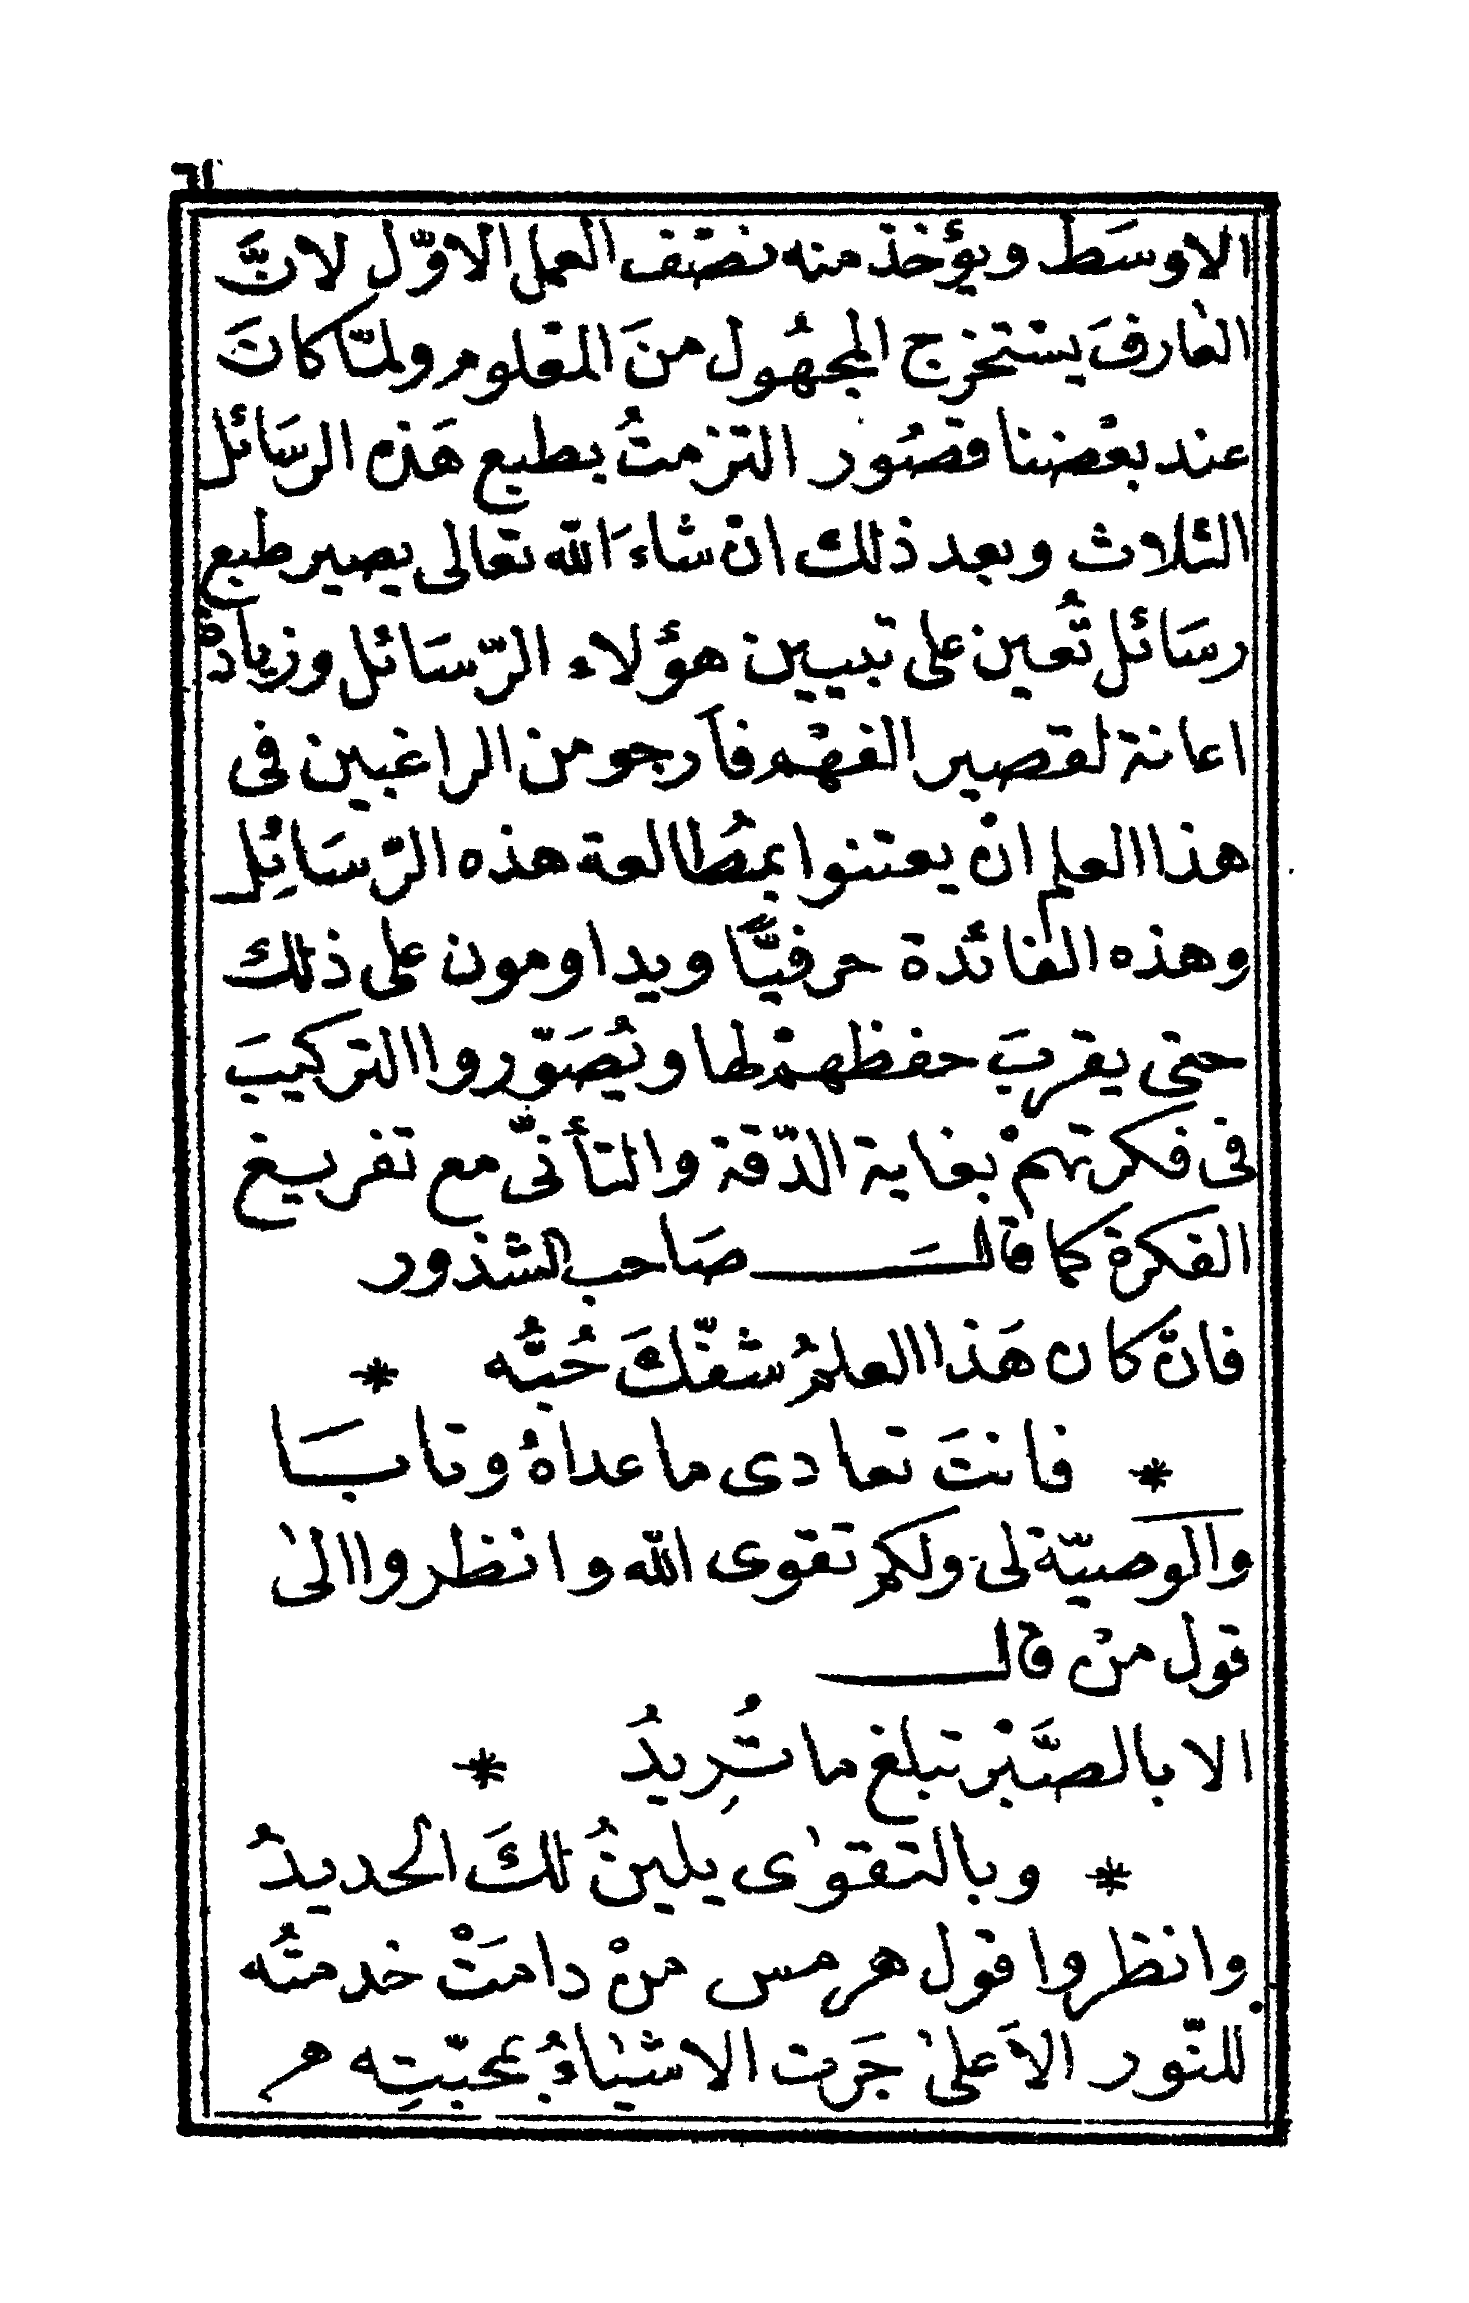 الاوسَط ويؤخذ منه نصف العمل الاوّل لانَّ
العٰارفَ يستخرج المجهُول منَ المعلوم ولمّا كانَ
عند بعْضنا قصُور التزمتُ بطبع هَذه الرسَائل
الثلاث وبعد ذلك ان شاءَ الله تعالى يصير طبع
رسَائل تُعين على تبيين هؤلاء الرّسَائل وزيادةْ
اعانة لقصير الفهْم فاَرجو من الراغبين فى
هذا العلم انْ يعتنوا بمطُالعة هذه الرّسَائِل
وهذه الفائدة حرفيًّا ويداومون على ذلك
حتى يقربَ حفظهمْ لها ويُصَوّروا التركيبَ
فى فكرتهمْ بغاية الدّقة والتأنّى مع تفريغ
الفكرة كما قالَ صَاحب الشذور
فانّ كان هَذا العلمُ شفّكَ حُبُّه *
* فانتَ تعادى ما عداهُ وتابَا
والوصيّة لى ولكم تقوى الله وانظروا الىٰ
قول منْ قال
الا بالصَّبْر تبلغ ما تُرِيدُ *
* وبالتقوٰى يلينُ لكَ الحديدُ
وانظروا قول هرمس منْ دامَتْ خدمتُه
للنّور الاَعلىٰ جَرَت الاشيٰاءُ بمحبّتِه م